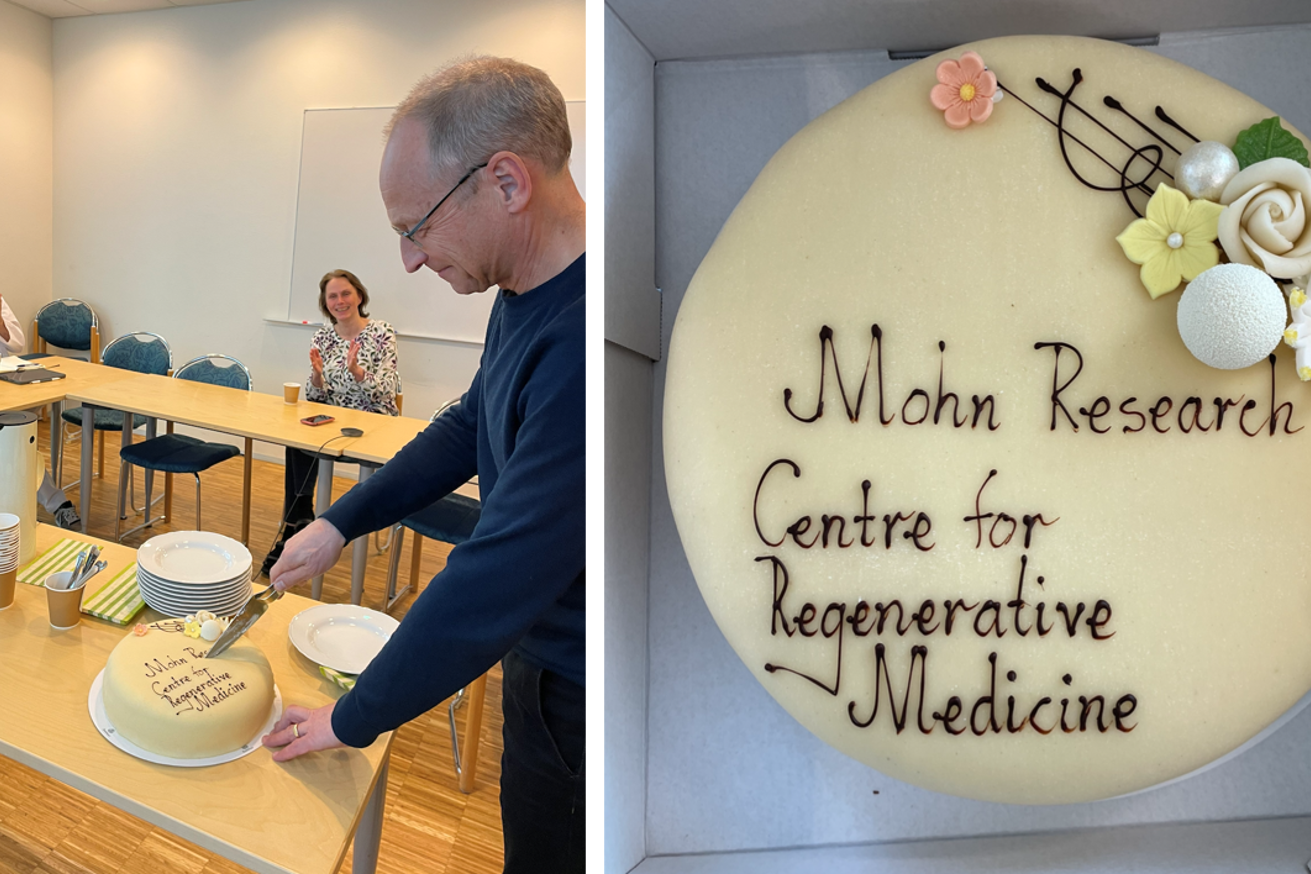 Mohn Res
Centre for
Regenerative
Medicine
Mohn Research
Centre for
Regenerative
Medicine